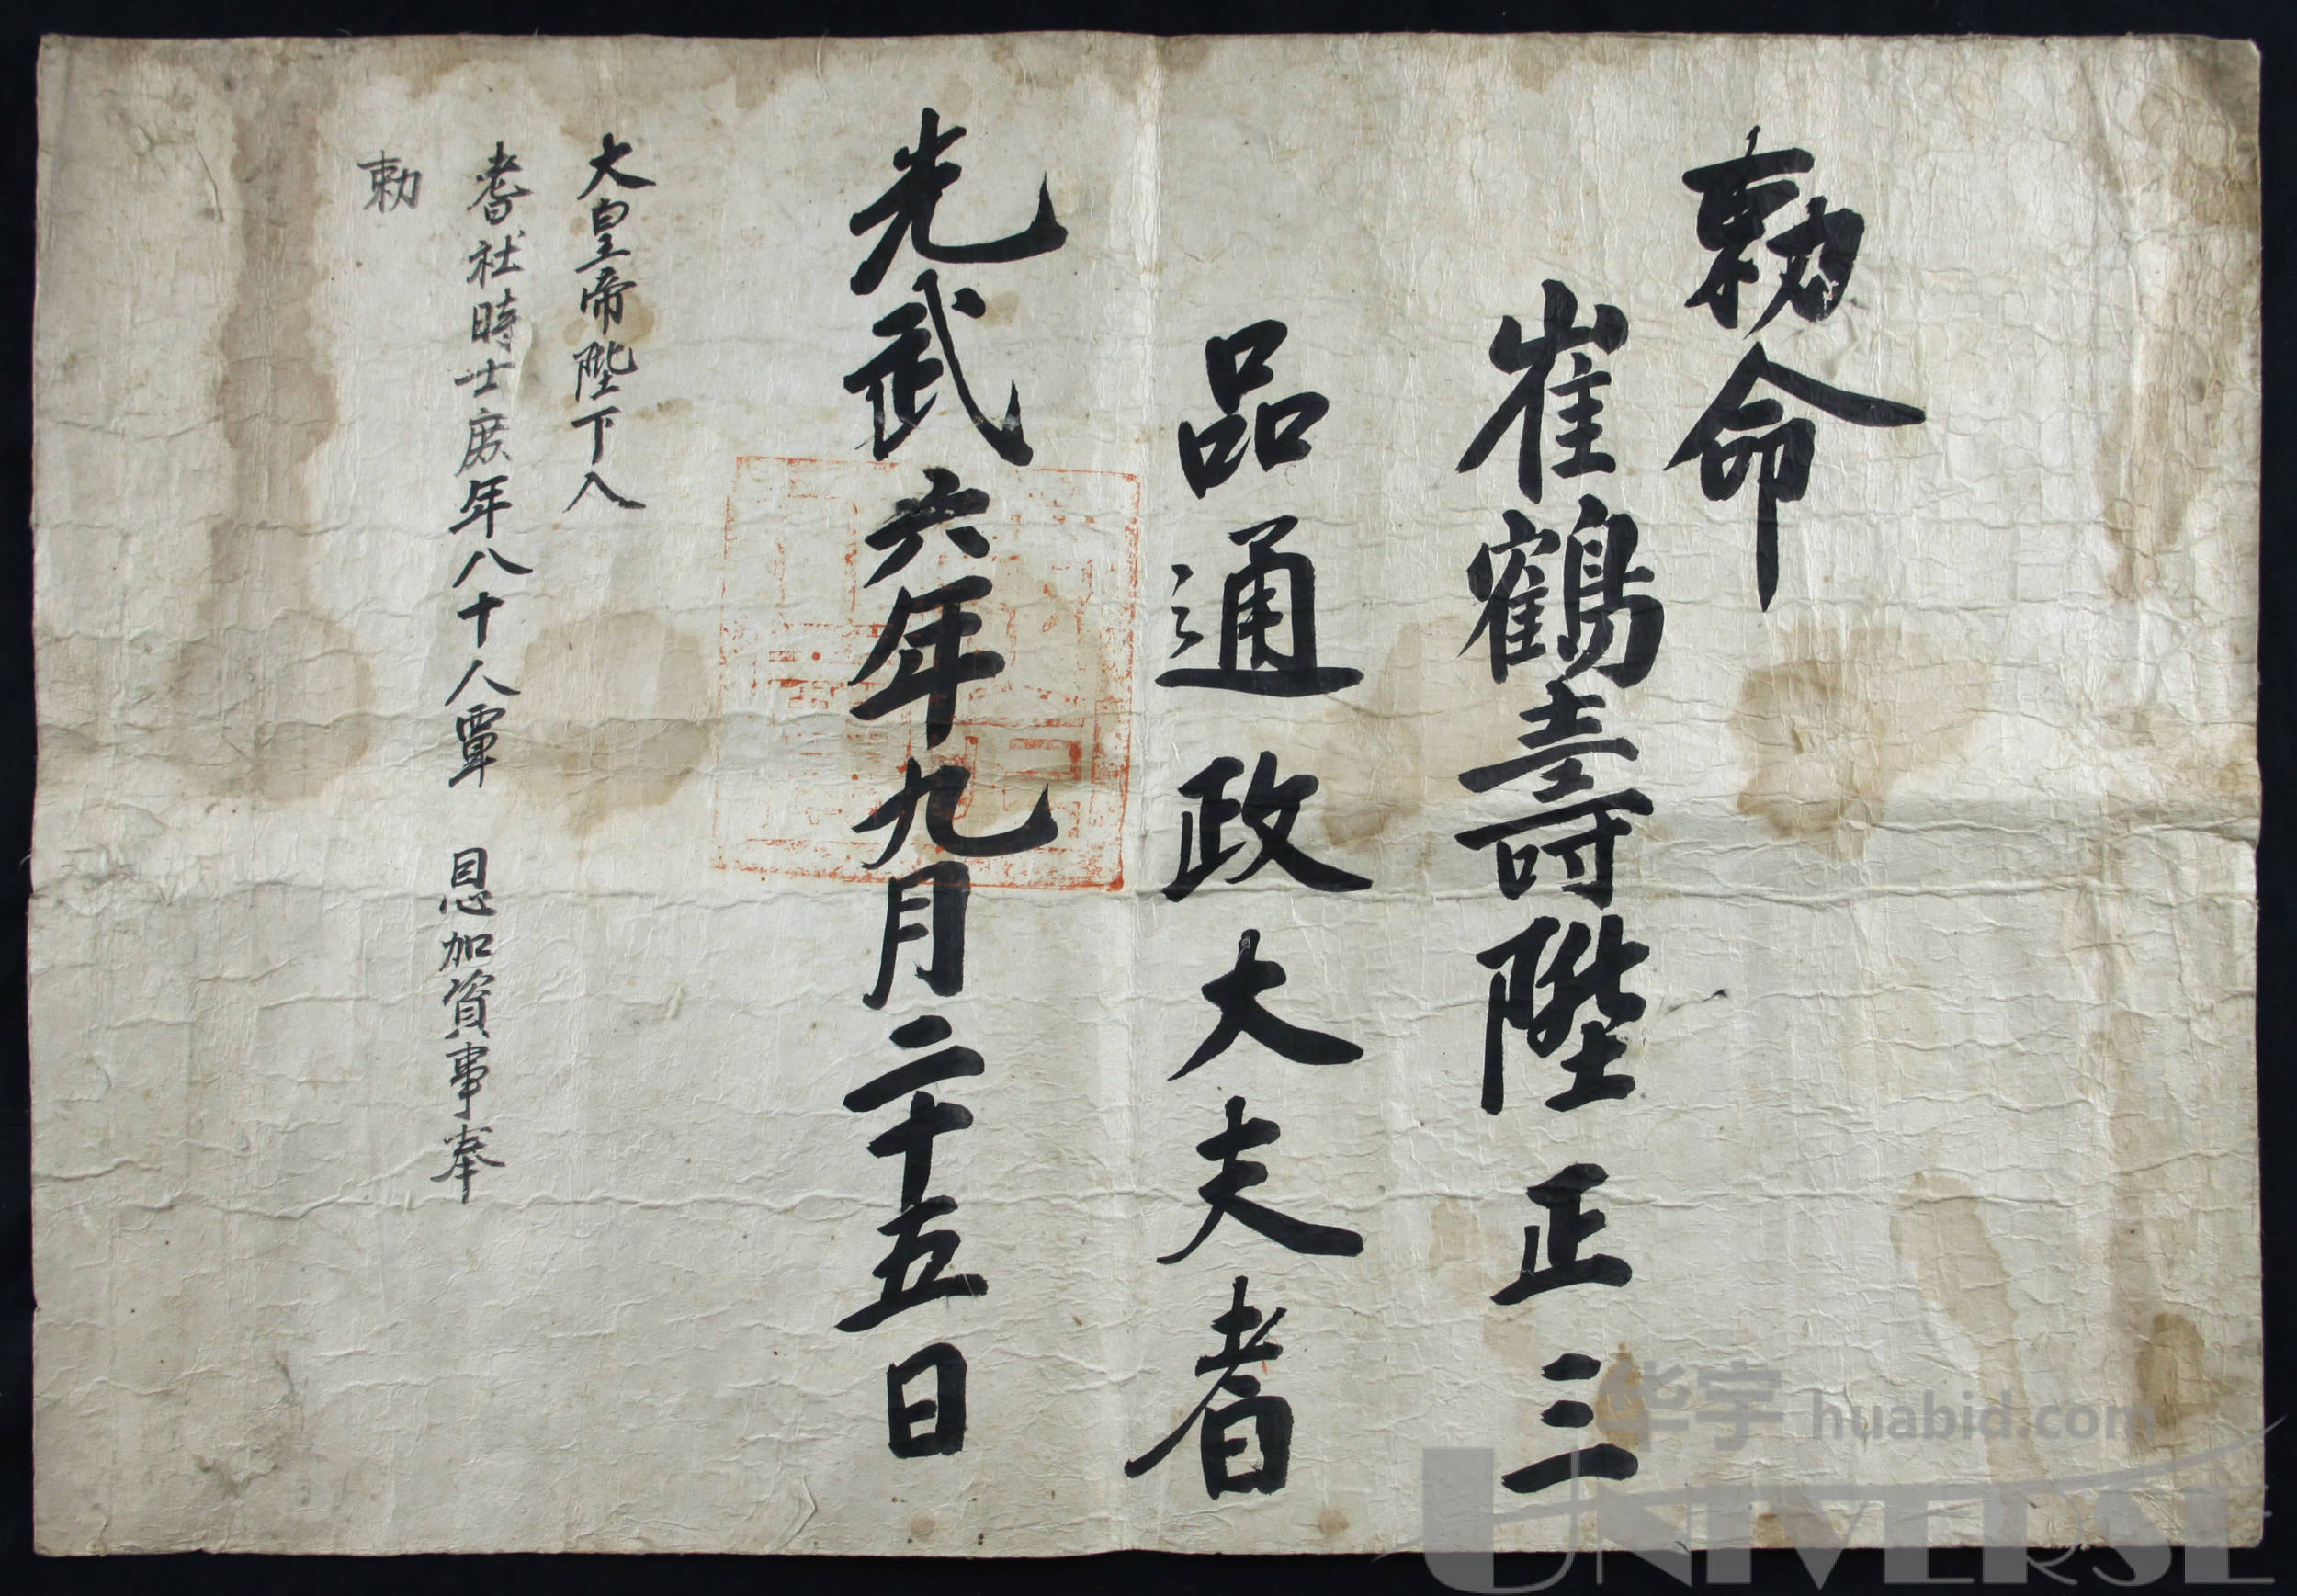 勅命
崔鶴壽陞正三
品通政大夫者
光武六年九月二十五日
大皇帝陛下入
耆社時士庶年八十人覃 恩加資事奉
勅
华宇 huabid.com
UNIVERSE